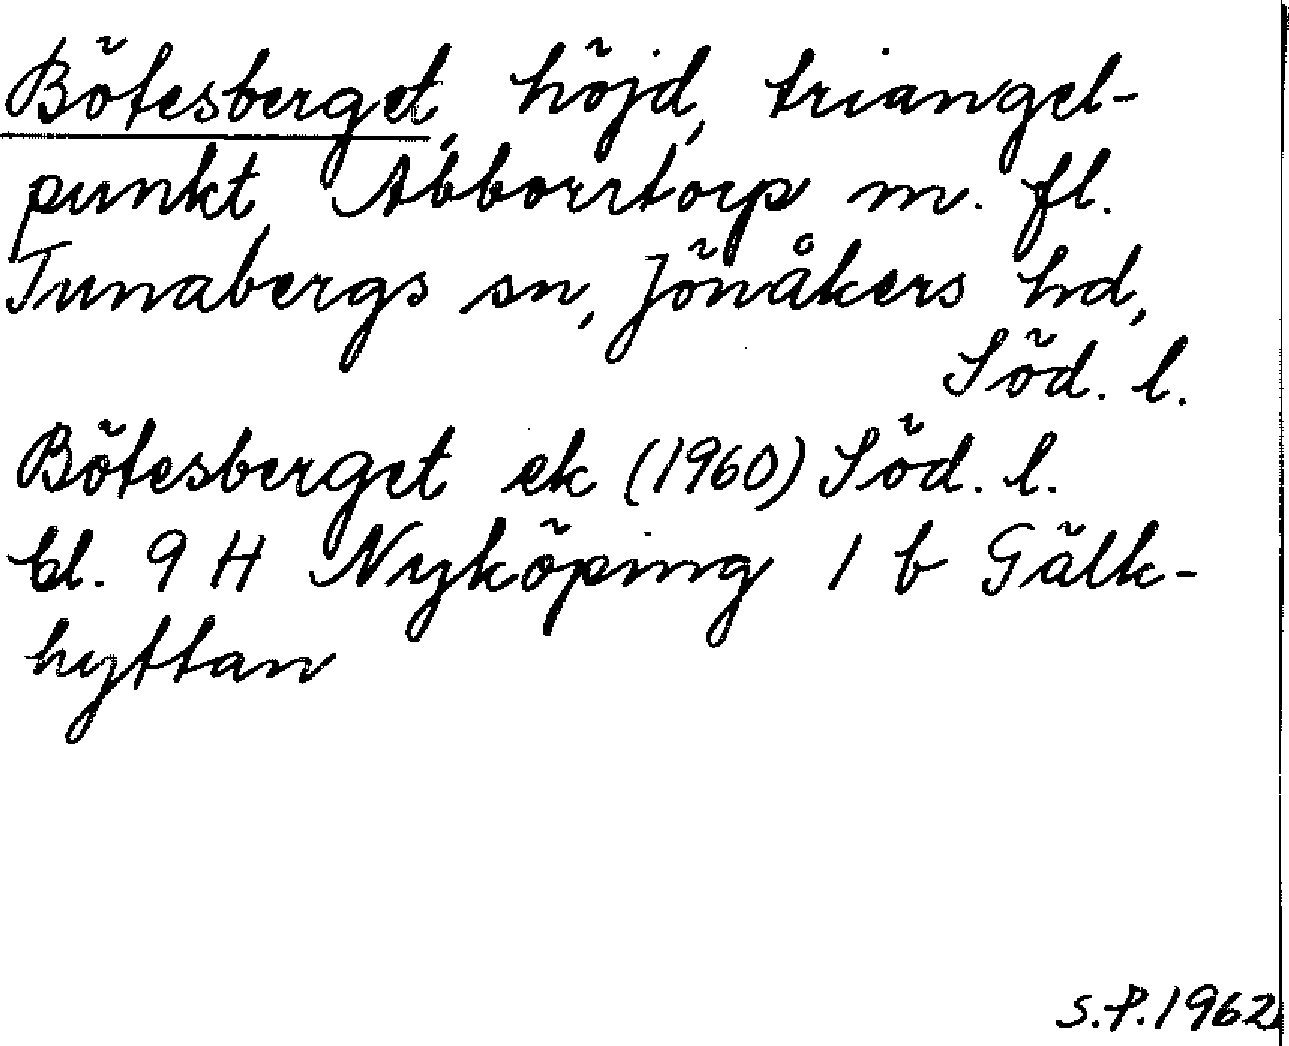 Bötesberget, höjd, triangel-
punkt, Abborrtorp m. fl.
Tunabergs sn, Jönåkers hd,
Söd. l.
Bötesberget ek (1960) Söd. l.
bl. 9 H Nyköping 1 b Gälk-
hyttan
S.P. 1962